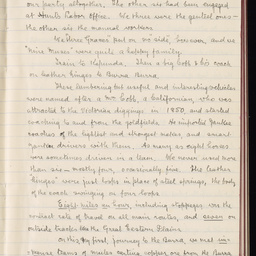 our party altogether. The other six had been engaged
at North Labor Office. We three were the genteel ones -
the other six the manual workers.
"We three Graces" sat on one side, however, and us
"Nine Muses" were quite a happy family.
Train to Kapunda. Then a big Cobb & Co's coach
on leather hinges to Burra Burra.
These lumbering but useful and interesting vehicles
were named after a Mr Cobb, a Californian, who was
attracted to the Victorian diggings in 1850, and started
coaching to and from the goldfields. He imported Yankee
coaches of the lightest and strongest makes, and smart
Yankee drivers with them. As many as eight horses
were sometimes driven in a team. We never used more
than six - mostly four, occasionally five. The leather
hinges were just loops in place of steel springs, the body
of the coach swinging on four loops.
Eight miles an hour, including stoppages, was the
contract rate of travel on all main routes, and even on
outside tracks like the Great Western Plains
On this my first journey to the Burra, we met in-
numerable teams of mules carting copper ore from the Burra